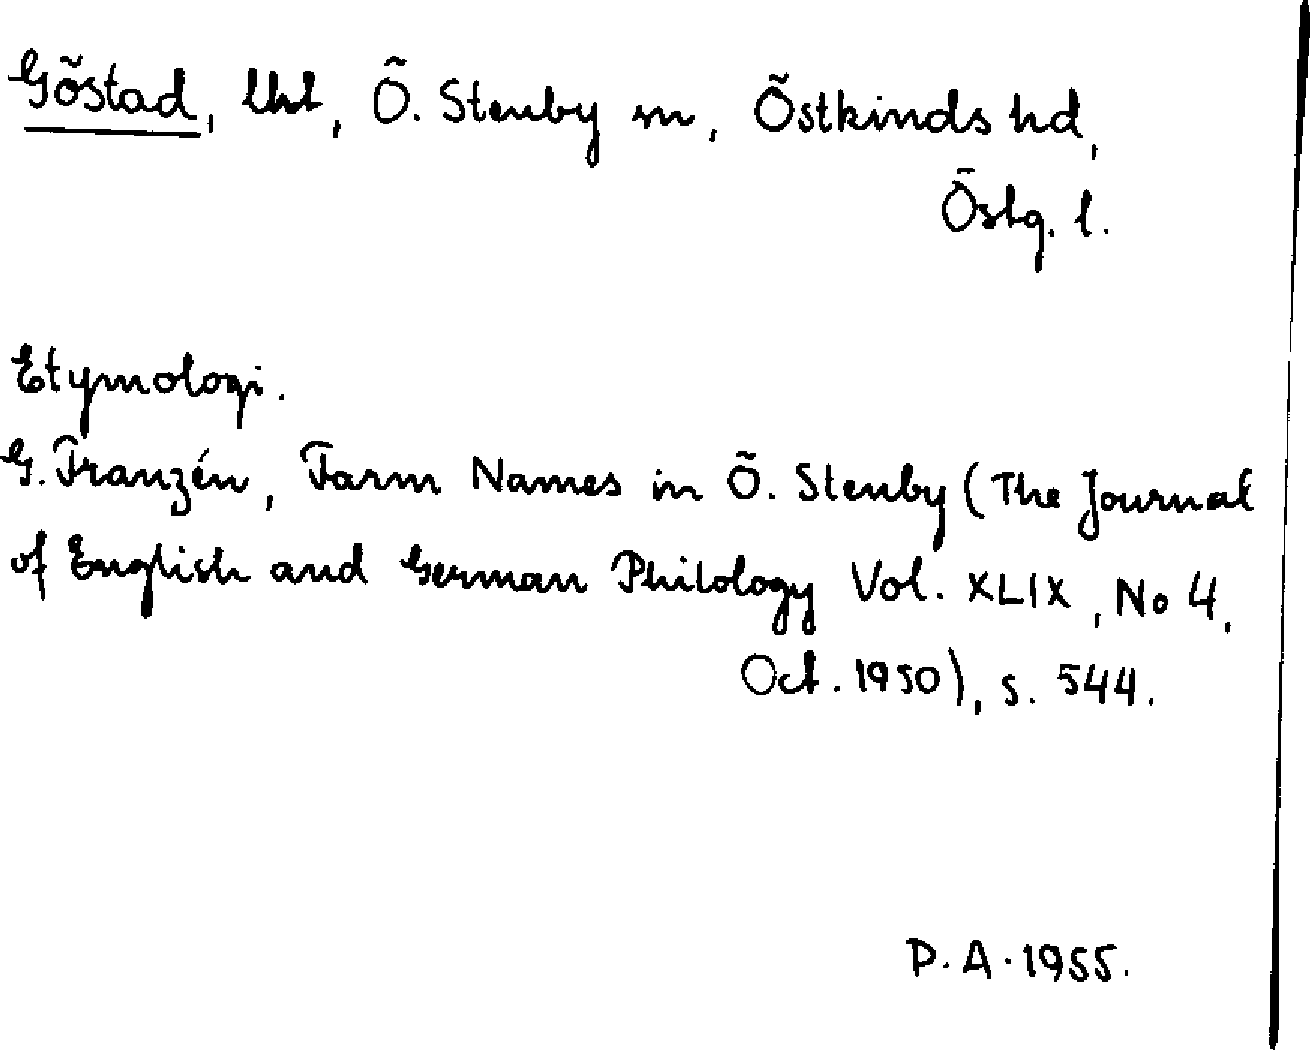 Göstad, Ö. Stenby sn, Östkinds hd,
Östg. l.
Etymologi.
G. Franzén, Farm Names in Ö. Stenby (The Journal
of English and German Philology Vol. XLIX, No 4,
Oct. 1950), s. 544.
P.A. 1955.